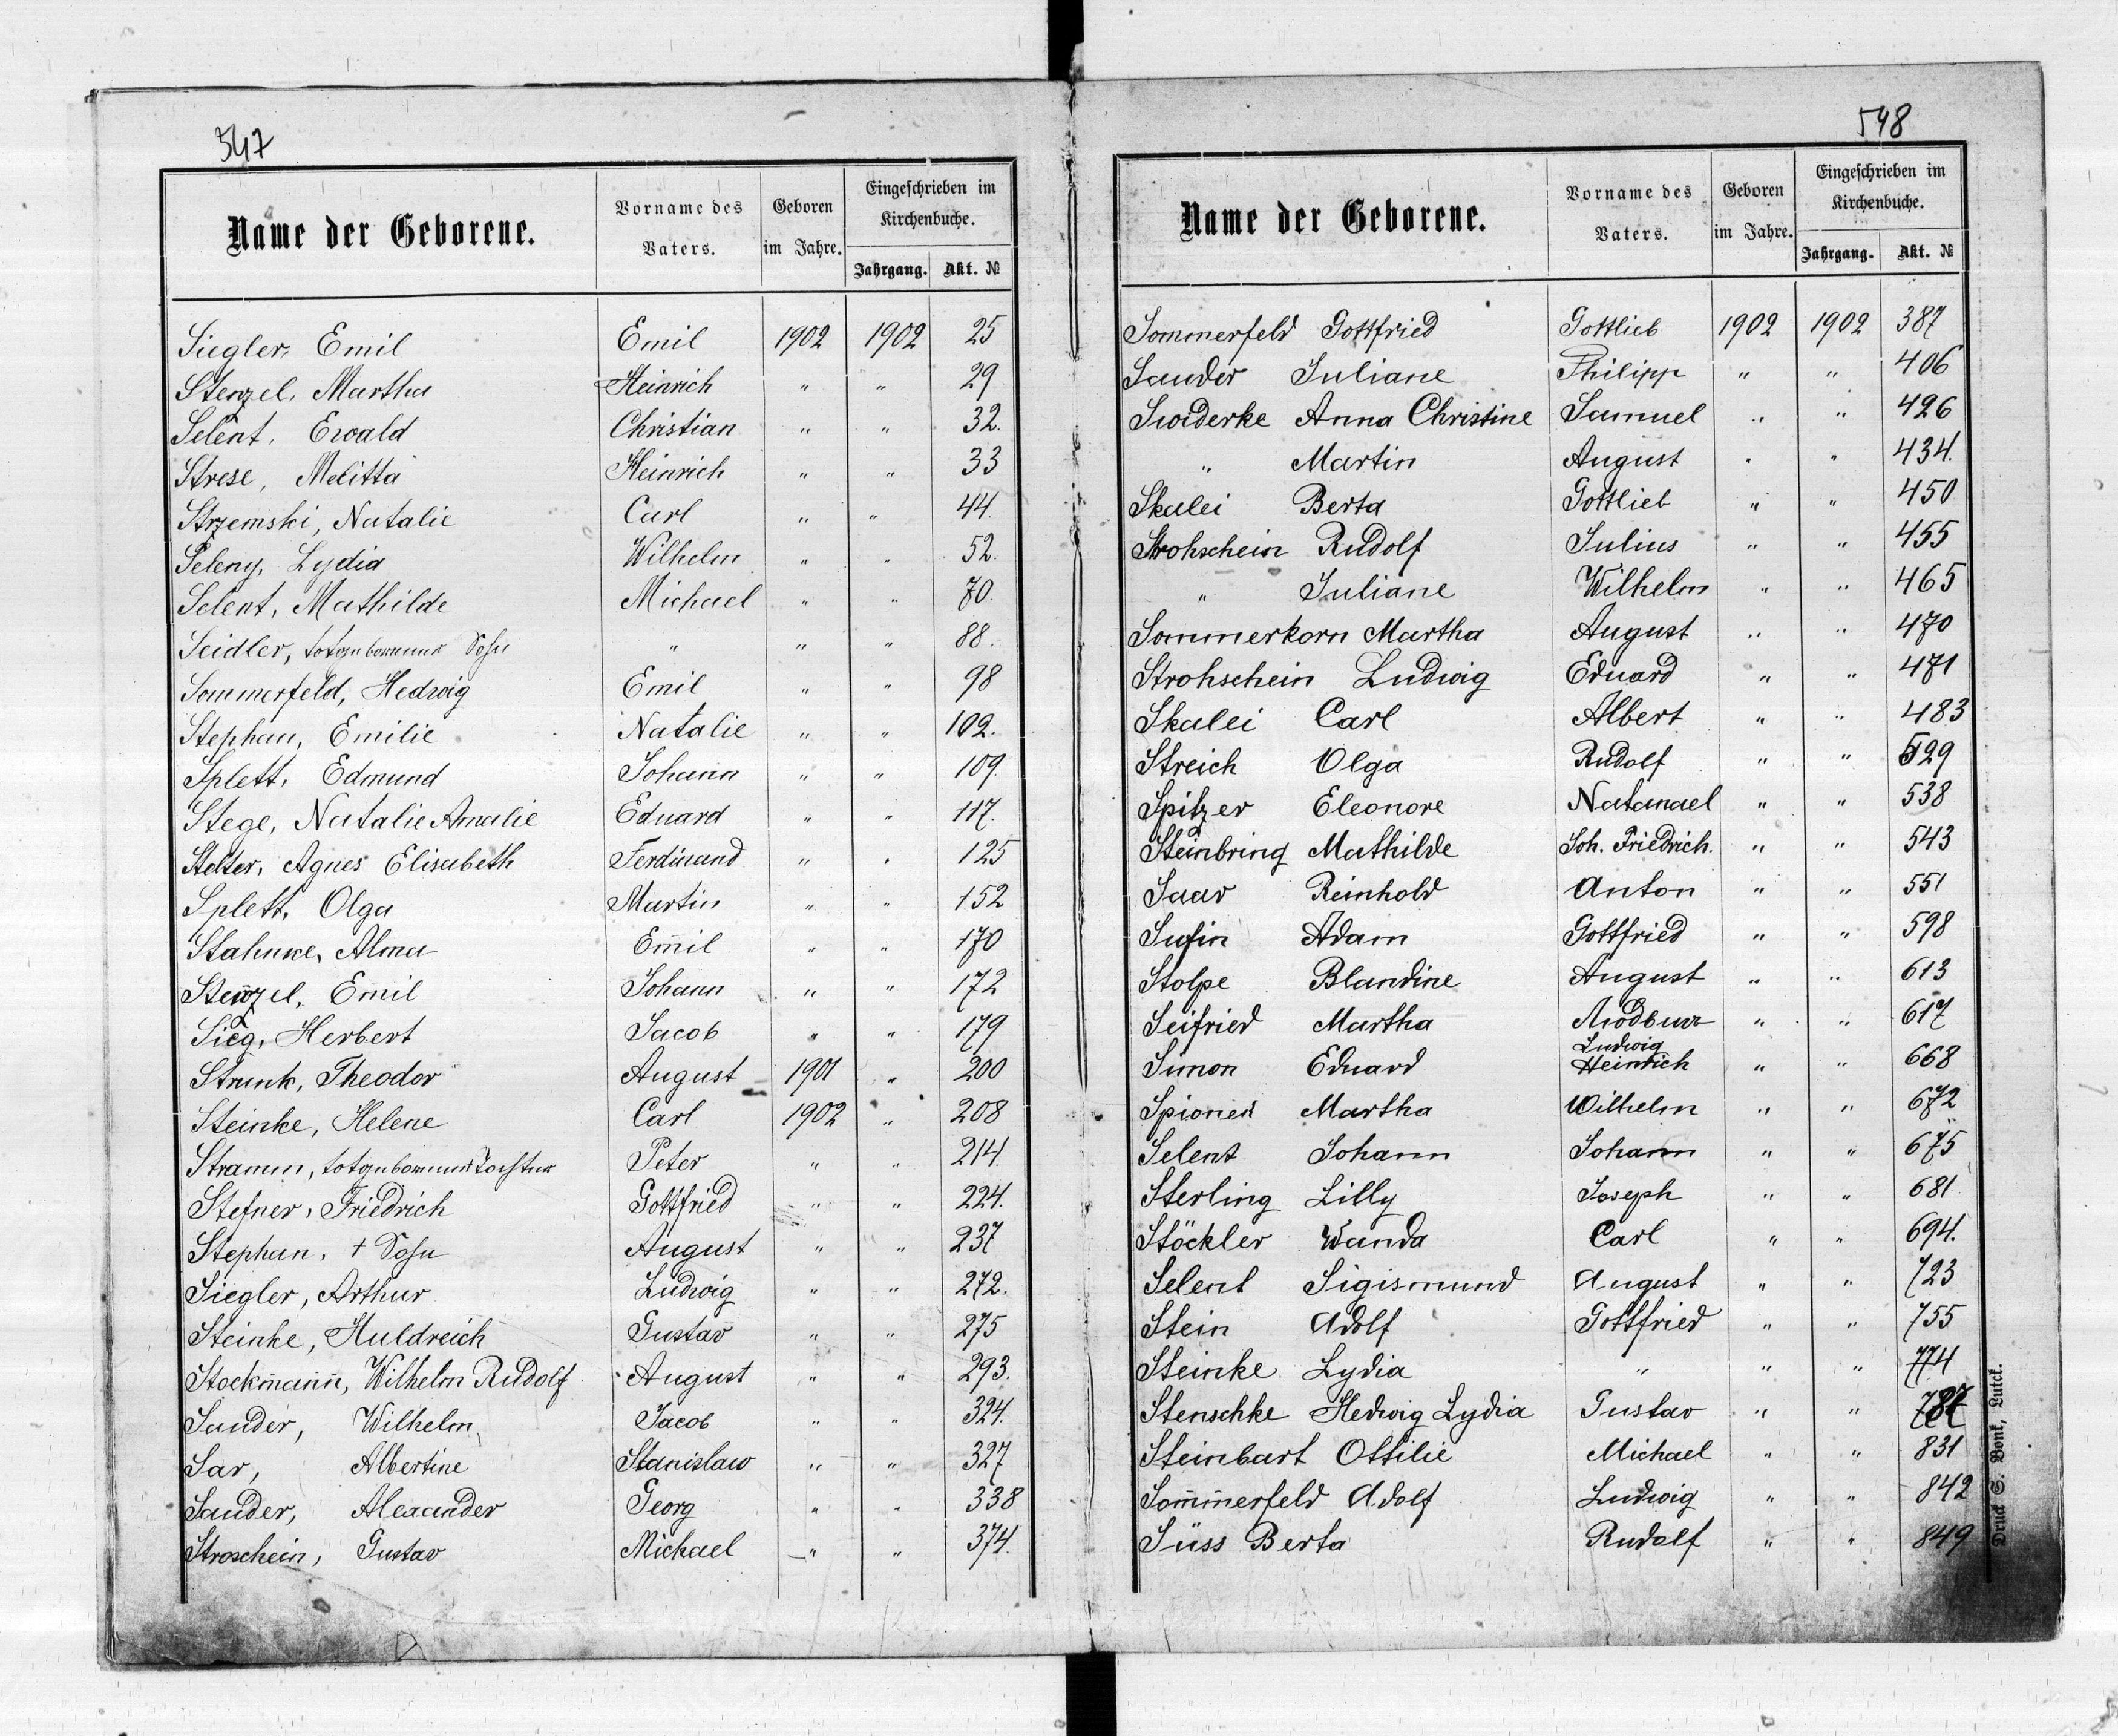 547
Name der Geborene. Vorname des Vaters. Geboren im Jahre. Eingeschrieben im Kirchenbuche. Jahrgang. Akt. №
Siegler, Emil Emil 1902 1902 25
Stenzel, Martha Heinrich " " 29
Selent, Ewald Christian " " 32.
Strese, Melitta Heinrich " " 33
Strzemski, Natalie Carl " " 44
Seleny, Lydia Wilhelm " " 52.
Selent, Mathilde Michael " " 70.
Seidler, totgeborener Sohn " " " 88.
Sommerfeld, Hedwig Emil " " 98
Stephan, Emilie Natalie " " 102.
Splett, Edmund Johann " " 109.
Stege, Natalie Amalie Eduard " " 117.
Stelter, Agnes Elisabeth Ferdinand " " 125
Splett, Olga Martin " " 152
Stahnke, Alma Emil " " 170
Stenzel, Emil Johann " " 172
Sieg, Herbert Jacob " " 179
Strunk, Theodor August 1901 " 200
Steinke, Helene Carl 1902 " 208
Stramm, totgeborene Tochter Peter " " 214.
Stefner, Friedrich Gottfried " " 224.
Stephan, + Sohn August " " 237
Siegler, Arthur Ludwig " " 272.
Steinke, Huldreich Gustav " " 275
Stockmann, Wilhelm Rudolf August " " 293.
Sander, Wilhelm Jacob " " 324.
Sar, Albertine Stanislaw " " 327
Sander, Alexander Georg " " 338
Stroschein, Gustav Michael " " 374.
548
Name der Geborene. Vorname des Vaters. Geboren im Jahre. Eingeschrieben im Kirchenbuche. Jahrgang. Akt. №
Sommerfeld Gottfried Gottlieb 1902 1902 387
Sander Juliane Philipp " " 406
Swiderke Anna Christine Samuel " " 426
" Martin August " " 434.
Skalei Berta Gottlieb " " 450
Strohschein Rudolf Julius " " 455
" Juliane Wilhelm " " 465
Sommerkorn Martha August " " 470
Strohschein Ludwig Eduard " " 471
Skalei Carl Albert " " 483
Streich Olga Rudolf " " 529
Spitzer Eleonore Natanael " " 538
Steinbring Mathilde Joh. Friedrich. " " 543
Saar Reinhold Anton " " 551
Sufin Adam Gottfried " " 598
Stolpe Blandine August " " 613
Seifried Martha " " 617
Simon Eduard Ludwig Heinrich " " 668
Spionek Martha Wilhelm " " 672
Selent Johann Johann " " 675
Sterling Lilly Joseph " " 681
Stöckler Wanda Carl " " 694.
Selent Sigismund August " " 723
Stein Adolf Gottfried " " 755
Steinke Lydia " " " 774
Stenschke Hedwig Lydia Gustav " " 787
Steinbart Ottilie Michael " " 831
Sommerfeld Adolf Ludwig " " 842
Süss Berta Rudolf " " 849
Druck S. Bonk, Lutck.